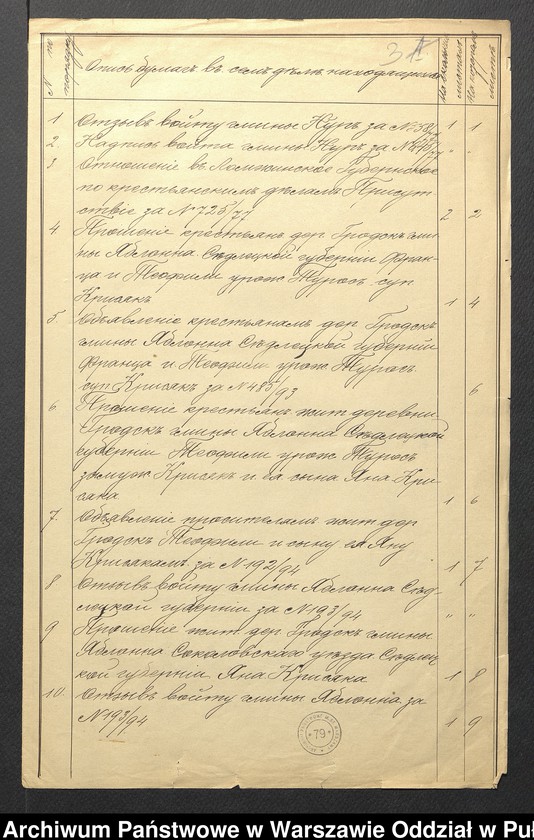 31
№ по порядку
Опись бумагъ въ семъ дѣлѣ находящихся
На сколькихъ листахъ
На которомъ листѣ
1 Отзывъ войту гмины Нуръ за № 58/77 1 1
2. Надпись войта гмины Нуръ за № /77 " "
3 Отношеніе въ Ломжинское Губернское
по крестьянскимъ дѣламъ Присут
ствіе за № 725/77 2 2
4 Прошеніе крестьянъ дер. Гродскъ гми
ны Яблонна Сѣдлецкой губерніи Фран-
ца и Теофили урож. Журосъ суп
Крисякъ 1 4
5. Объявленіе крестьянамъ дер. Гродскъ
гмины Яблонна Сѣдлецкой губерніи
Франца и Теофили урож. Журосъ
суп Крисякъ за № 485/93 6
6 Прошеніе крестьянъ жит. деревни
Гродскъ гмины Яблонна Сѣдлецкой
губерніи Теофили урож. Журосъ
замуж. Крисякъ и ея сына Яна Кри
сяка 1 6
7. Объявленіе просителямъ жит. дер
Гродскъ Теофили и сыну ея Яну
Крисякамъ за № 192/94 1 7
8 Отзывъ войту гмины Яблонна Сѣд-
лецкой губерніи за № 193/94 " "
9 Прошеніе жит. дер. Гродскъ гмины
Яблонна Соколовскаго уѣзда Сѣдлец
кой губерніи Яна Крисяка 1 8
10. Отзывъ войту гмины Яблонна за
№ 193/94 1 9
79
Archiwum Państwowe w Warszawie Oddział w Puł